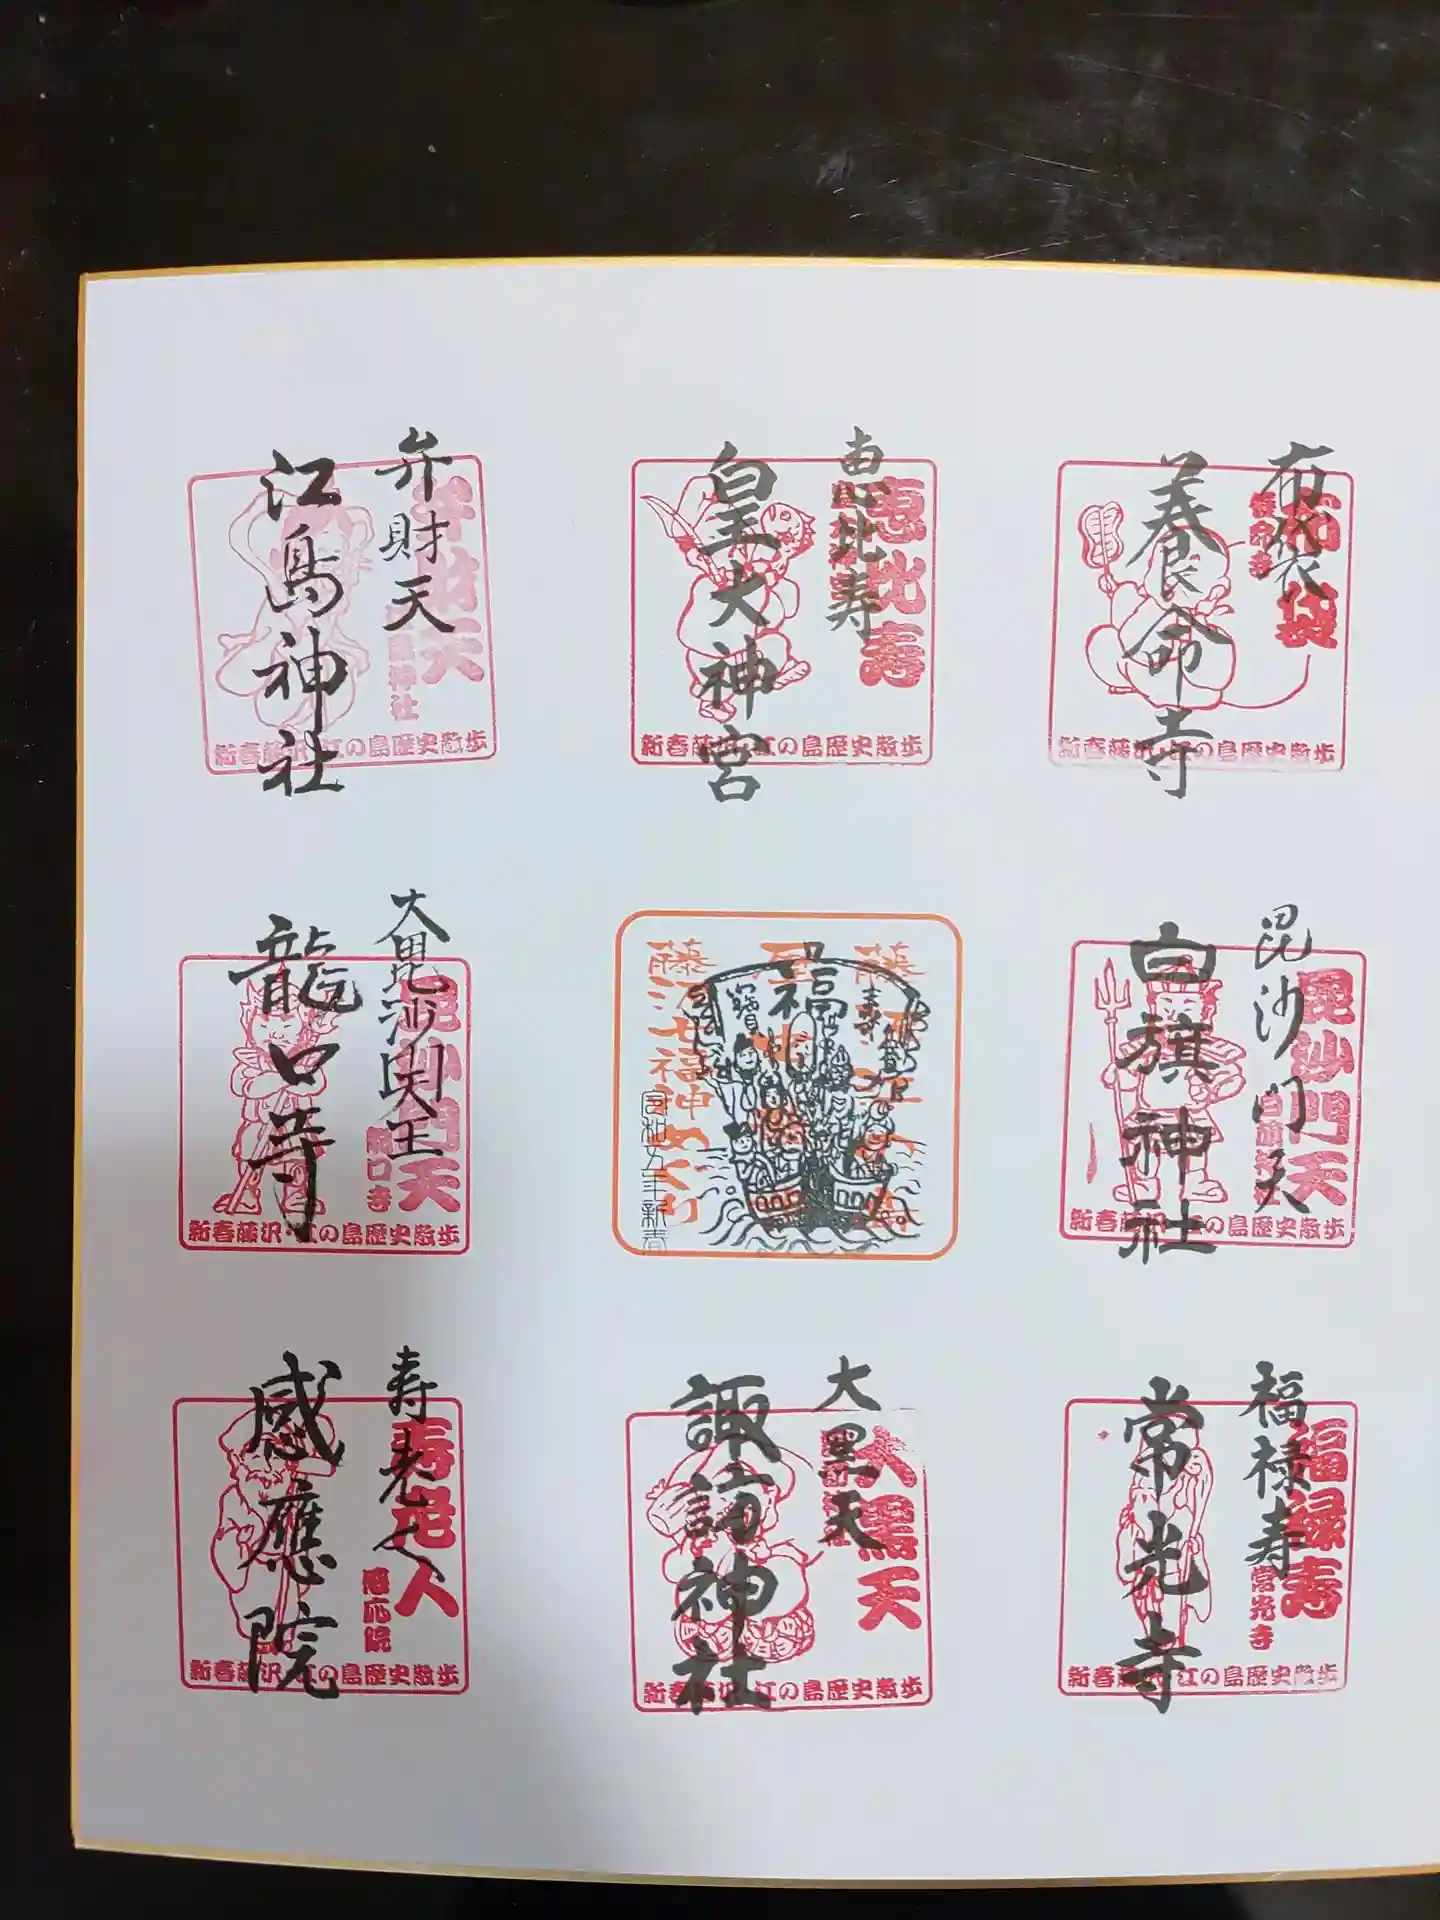 布袋
養命寺
布袋
養命寺
新春藤沢・江の島歴史散歩
恵比寿
皇大神宮
恵比寿
新春藤沢・江の島歴史散歩
弁財天
江島神社
弁財天
江島神社
新春藤沢・江の島歴史散歩
毘沙門天
白旗神社
毘沙門天
白旗神社
新春藤沢・江の島歴史散歩
福
寳
藤沢七福神めぐり
新春
大毘沙門天王
龍口寺
毘沙門天
龍口寺
新春藤沢・江の島歴史散歩
福禄寿
常光寺
福禄寿
常光寺
新春藤沢・江の島歴史散歩
大黒天
諏訪神社
大黒天
新春藤沢・江の島歴史散歩
寿老人
感應院
寿老人
感応院
新春藤沢・江の島歴史散歩